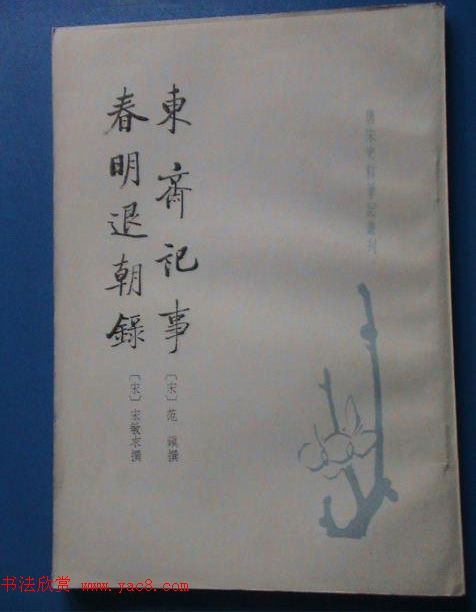 唐宋史料筆記叢刊
東齋記事
〔宋〕范鎮撰
春明退朝錄
〔宋〕宋敏求撰
书法欣赏 www.yac8.com